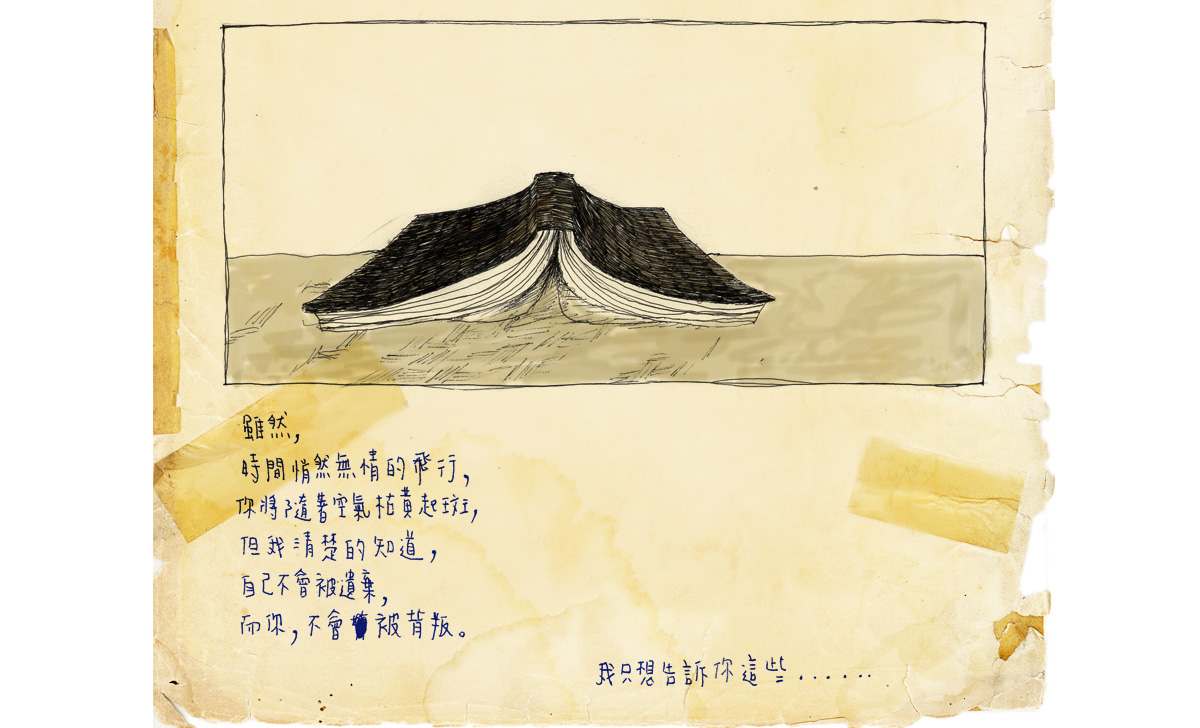 雖然,
時間悄然無情的飛行,
你將隨著空氣枯黃起斑,
但我清楚的知道,
自己不會被遺棄,
而你,不會被背叛。
我只想告訴你這些......